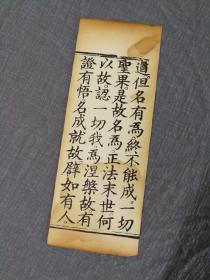 道但名有為終不能成一切
聖果是故名為正法末世何
以故認一切我為涅槃故有
證有悟名成就故辟如有人